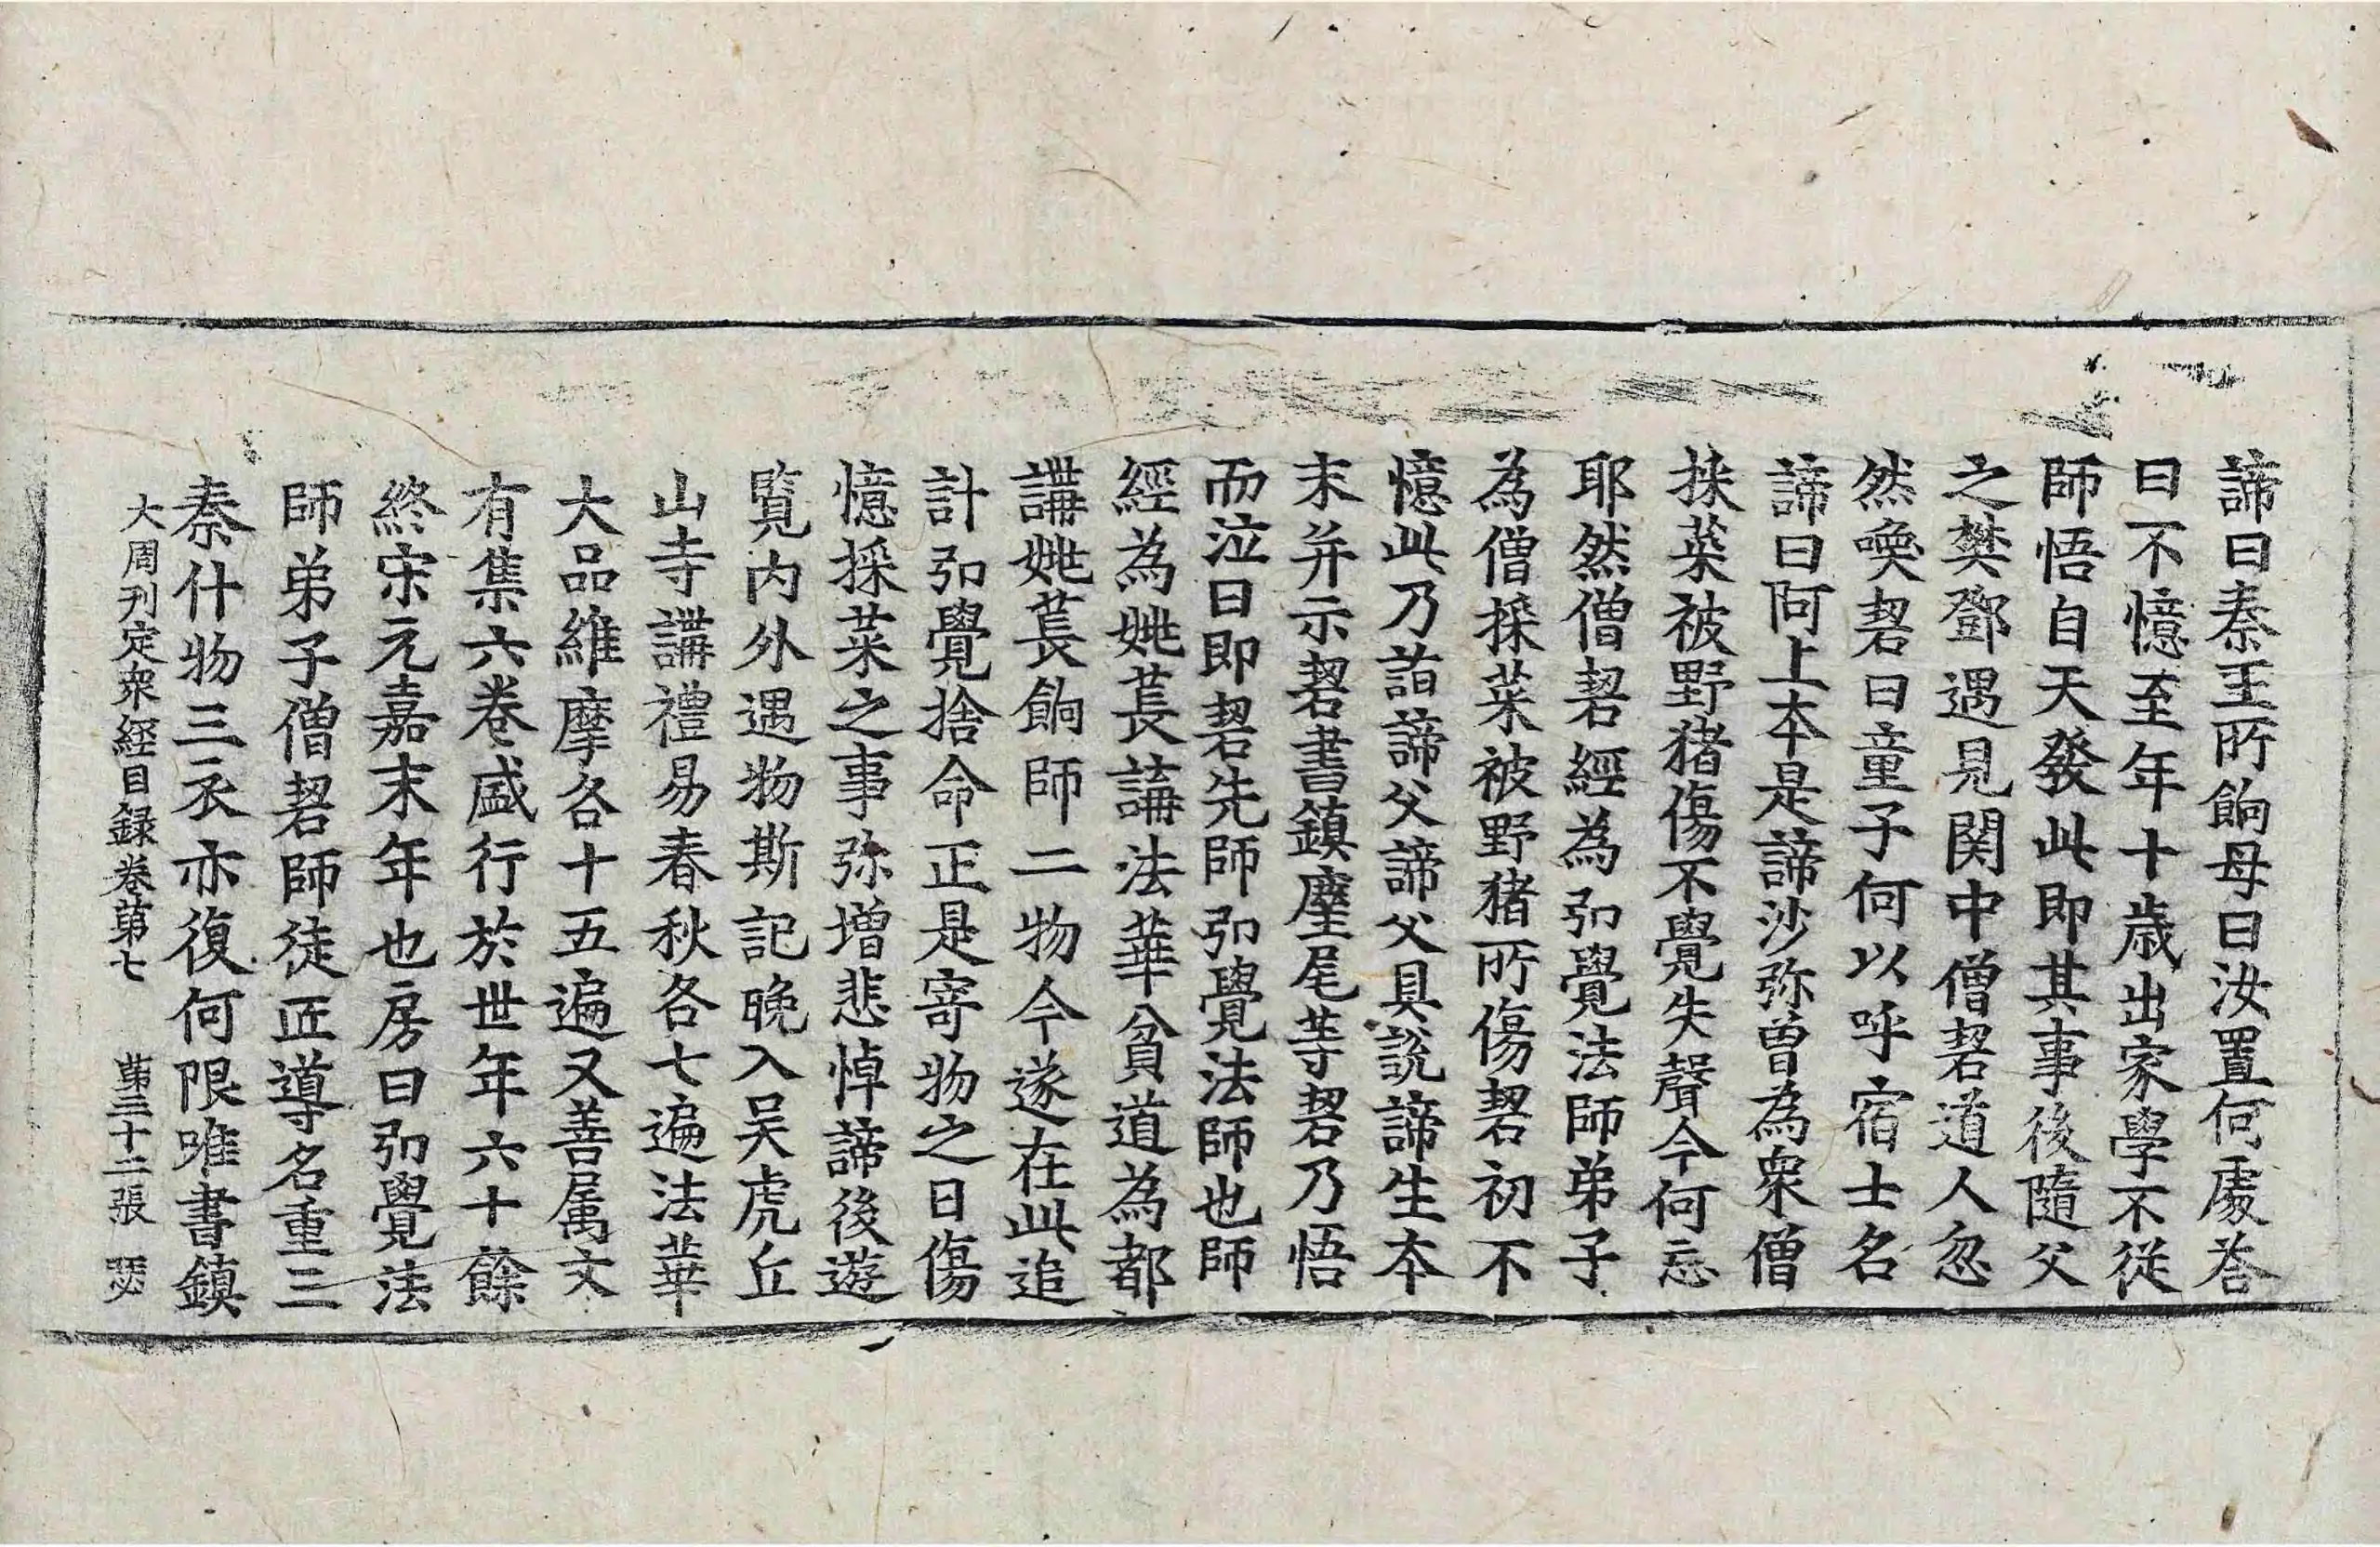 諦曰秦王所餉母曰汝置何處荅
曰不憶至年十歲出家學不從
師悟自天發此即其事後隨父
之樊鄧遇見関中僧䂮道人忽
然喚䂮曰童子何以呼宿士名
諦曰阿上本是諦沙弥曾為衆僧
採菜被野猪傷不覺失聲今何忘
耶然僧䂮經為弘覺法師弟子
為僧採菜被野猪所傷䂮初不
憶此乃詣諦父諦父具說諦生本
末并示䂮書鎮麈尾等䂮乃悟
而泣曰即䂮先師弘覺法師也師
經為姚萇講法華貧道為都
講姚萇餉師二物今遂在此追
計弘覺捨命正是寄物之日傷
憶採菜之事弥增悲悼諦後遊
覧內外遇物斯記晚入吴虎丘
山寺講禮易春秋各七遍法華
大品維摩各十五遍又善属文
有集六卷盛行於世年六十餘
終宋元嘉末年也房曰弘覺法
師弟子僧䂮師徒匠導名重三
秦什物三衣亦復何限唯書鎮
大周刊定衆經目録卷第七 第三十二張